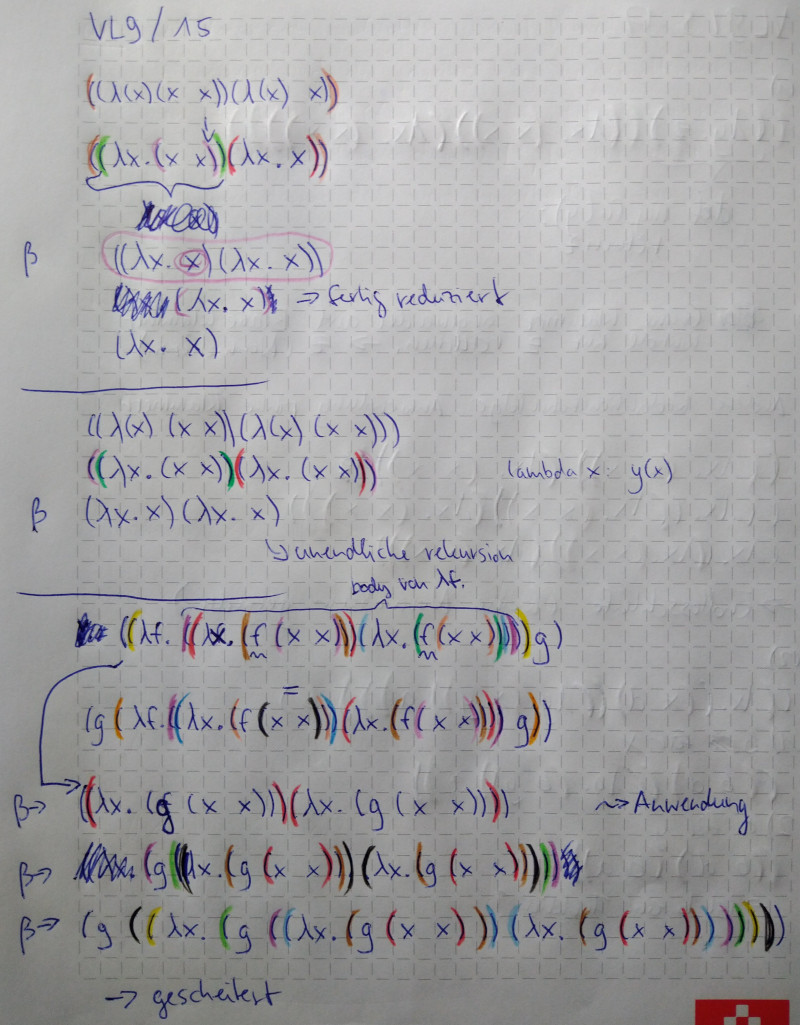 VL9/15
((λ(x)(x x))(λ(x) x))
((λx.(x x))(λx.x))
β ((λx. x)(λx. x))
(λx. x) → fertig reduziert
(λx. x)
((λ(x) (x x))(λ(x) (x x)))
((λx.(x x))(λx.(x x))) lambda x: y(x)
β (λx.x)(λx.x)
↳ unendliche rekursion
body von λf.
((λf.((λx.(f(x x)))(λx.(f(x x)))))g)
=
(g(λf.((λx.(f(x x)))(λx.(f(x x)))) g))
β→ ((λx.(g (x x)))(λx.(g (x x)))) ↝ Anwendung
β→ (g((λx.(g(x x)))(λx.(g(x x)))))
β→ (g ((λx.(g ((λx.(g (x x)))(λx.(g(x x))))))))
→ gescheitert